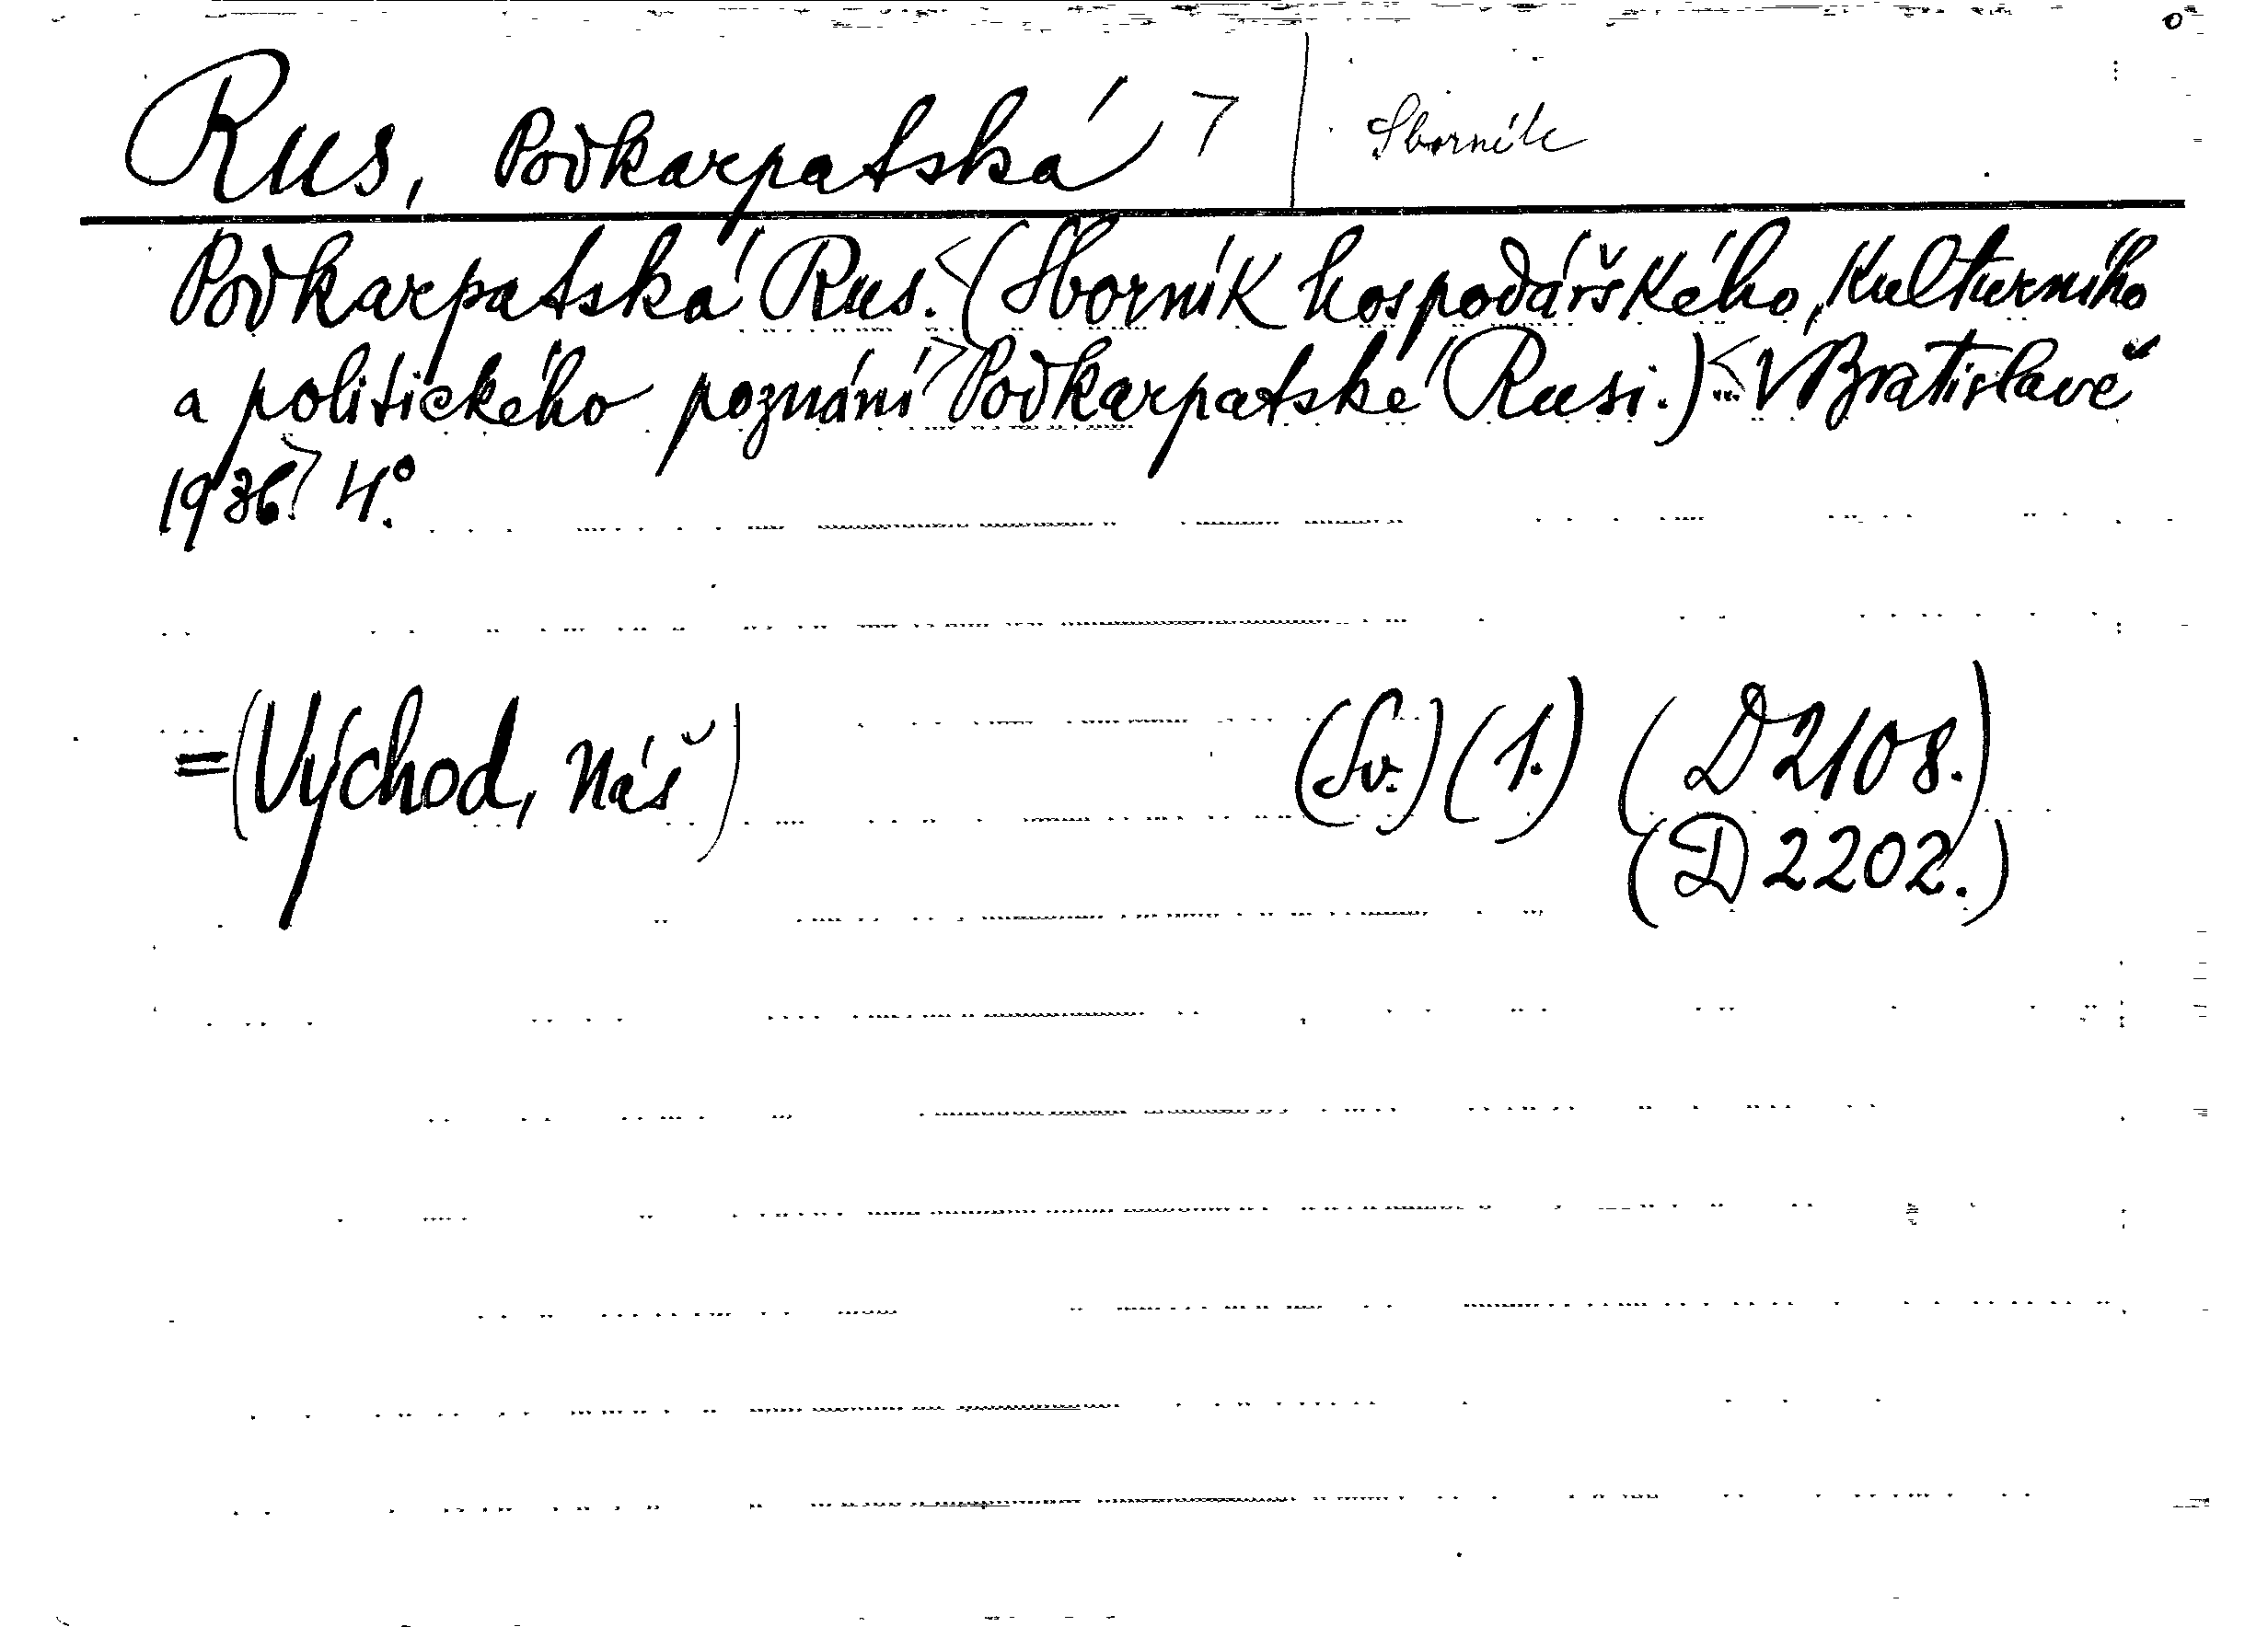 Rus, Podkarpatská 7 | Sborník
Podkarpatská Rus. <(Sborník hospodářského, kulturního
a politického poznání> Podkarpatské Rusi.) < V Bratislavě
1936.> 4°.
=(Východ, náš) (Sv.) (1.) (D 2108.)
(D 2202.)